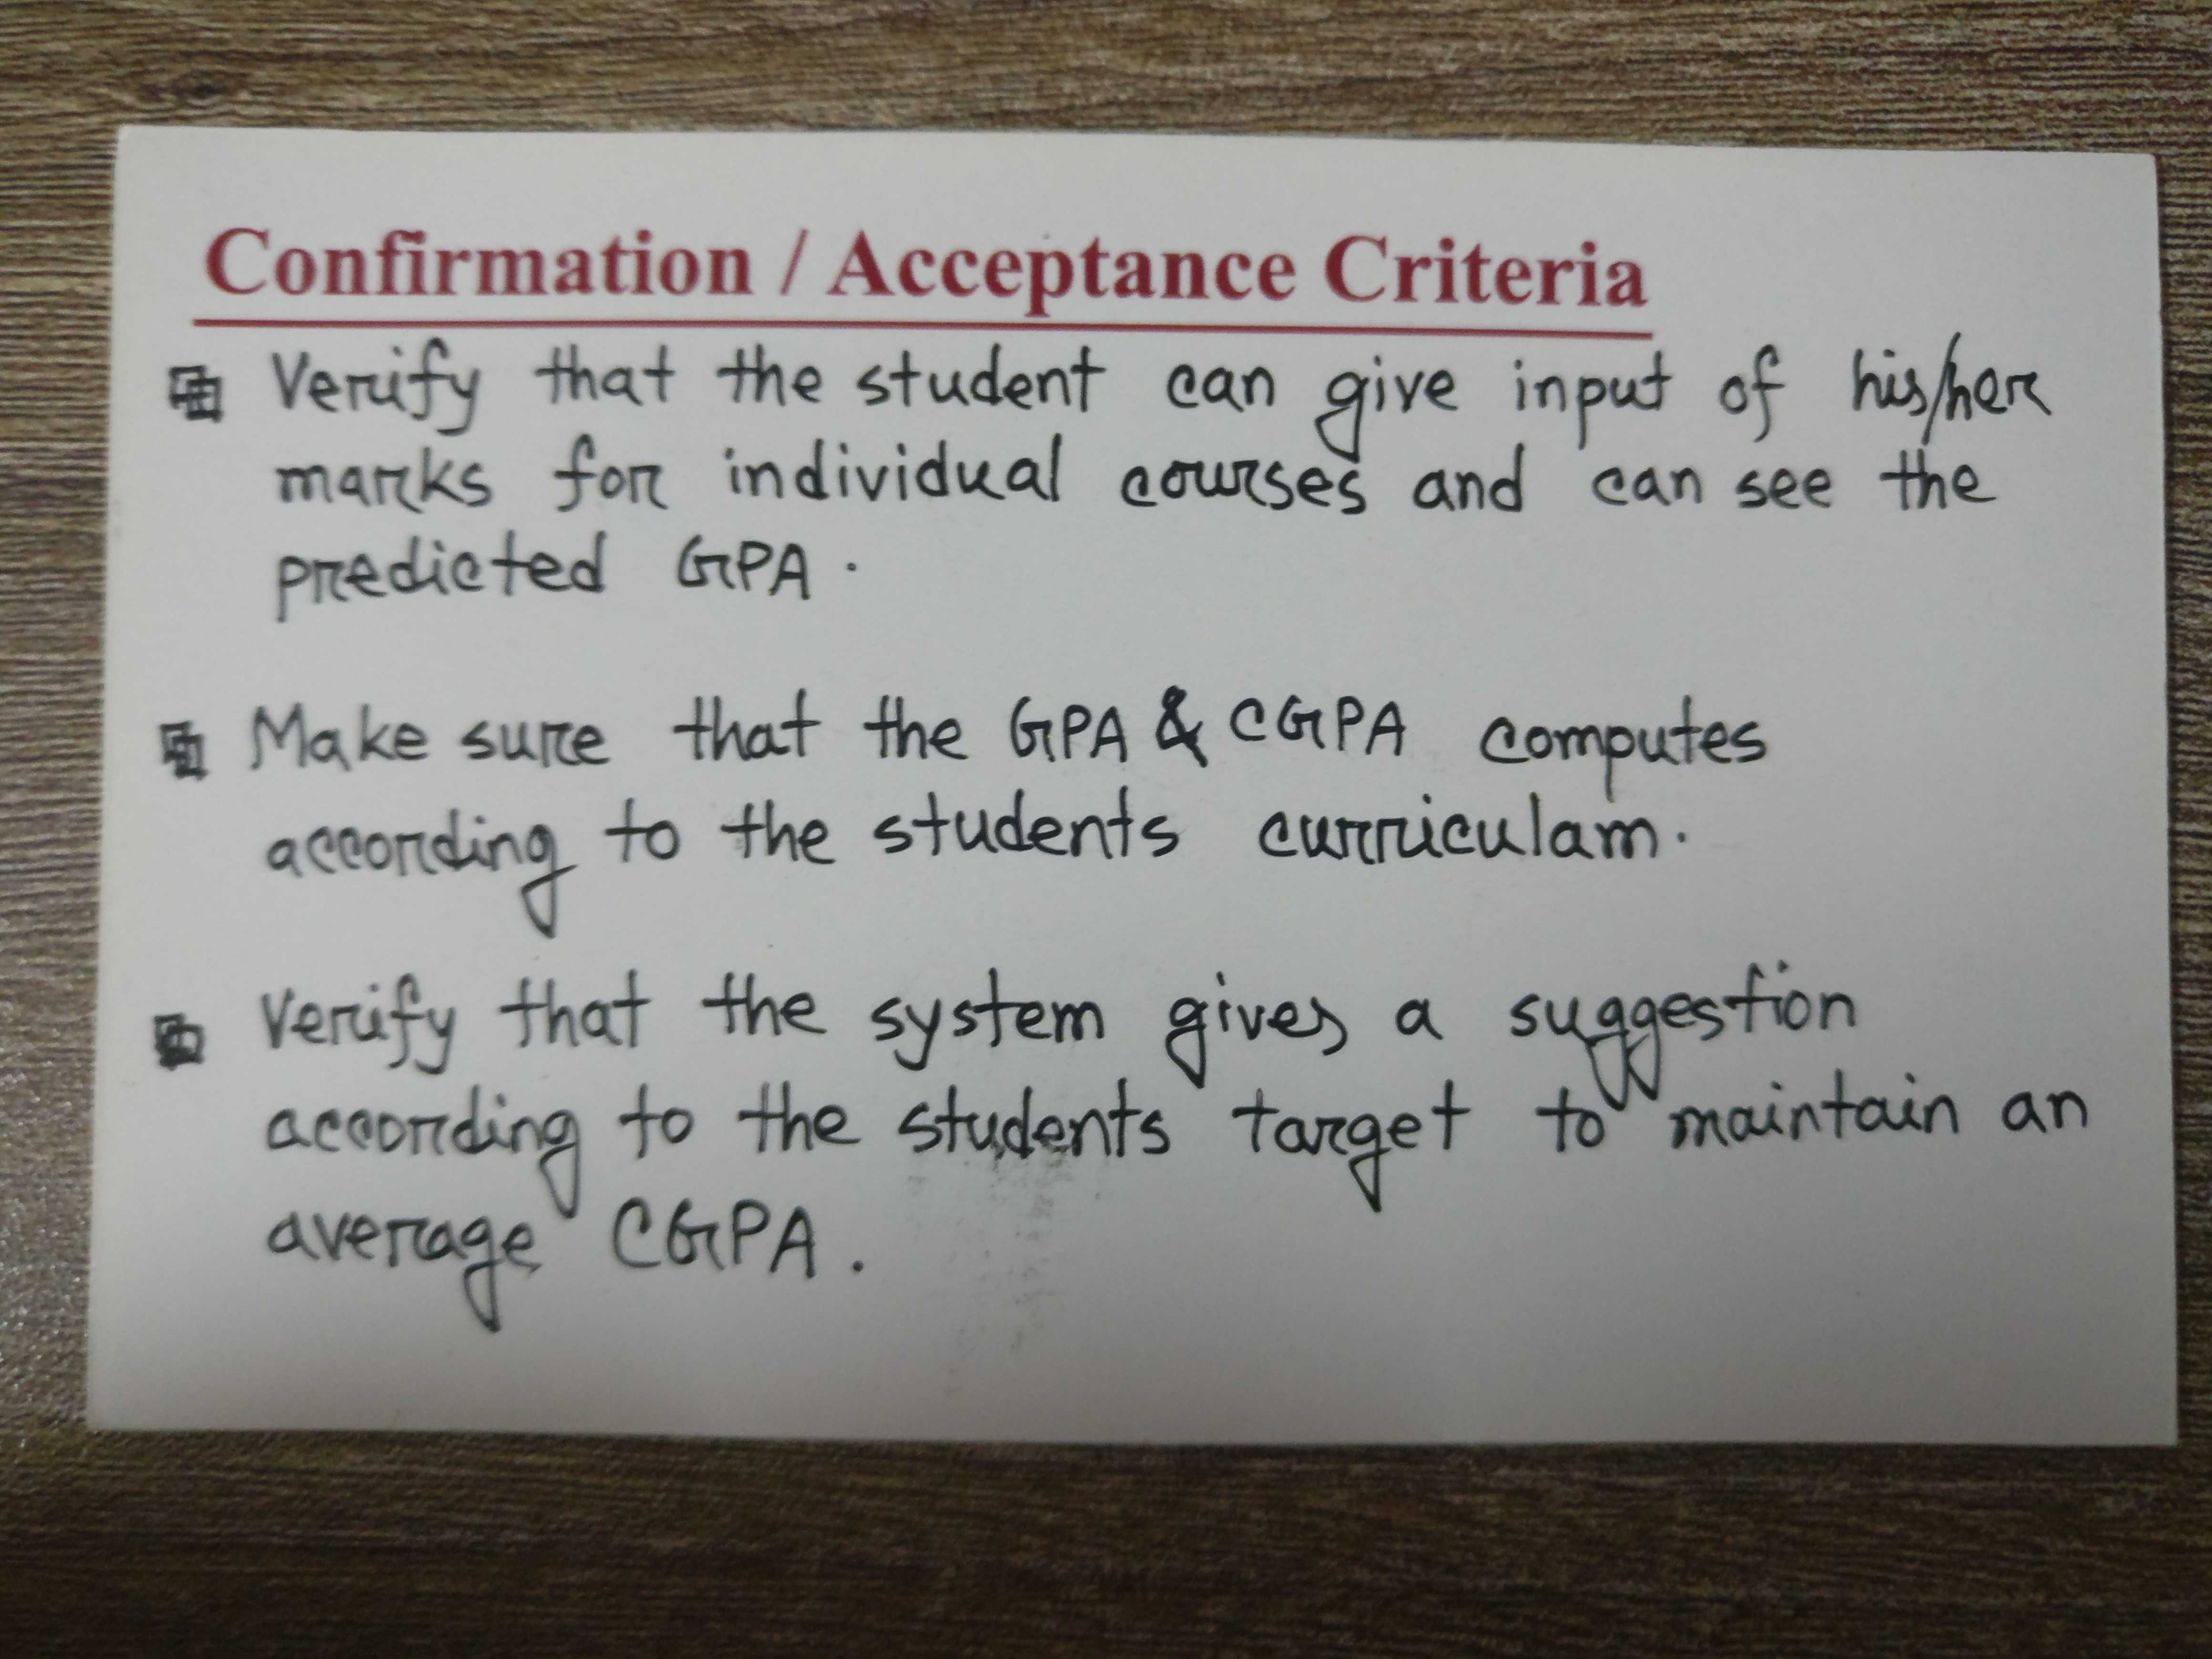 Confirmation / Acceptance Criteria
Verify that the student can give input of his/her
marks for individual courses and can see the
predicted GPA.
Make sure that the GPA & CGPA computes
according to the students curriculam.
Verify that the system gives a suggestion
according to the students target to maintain an
average CGPA.